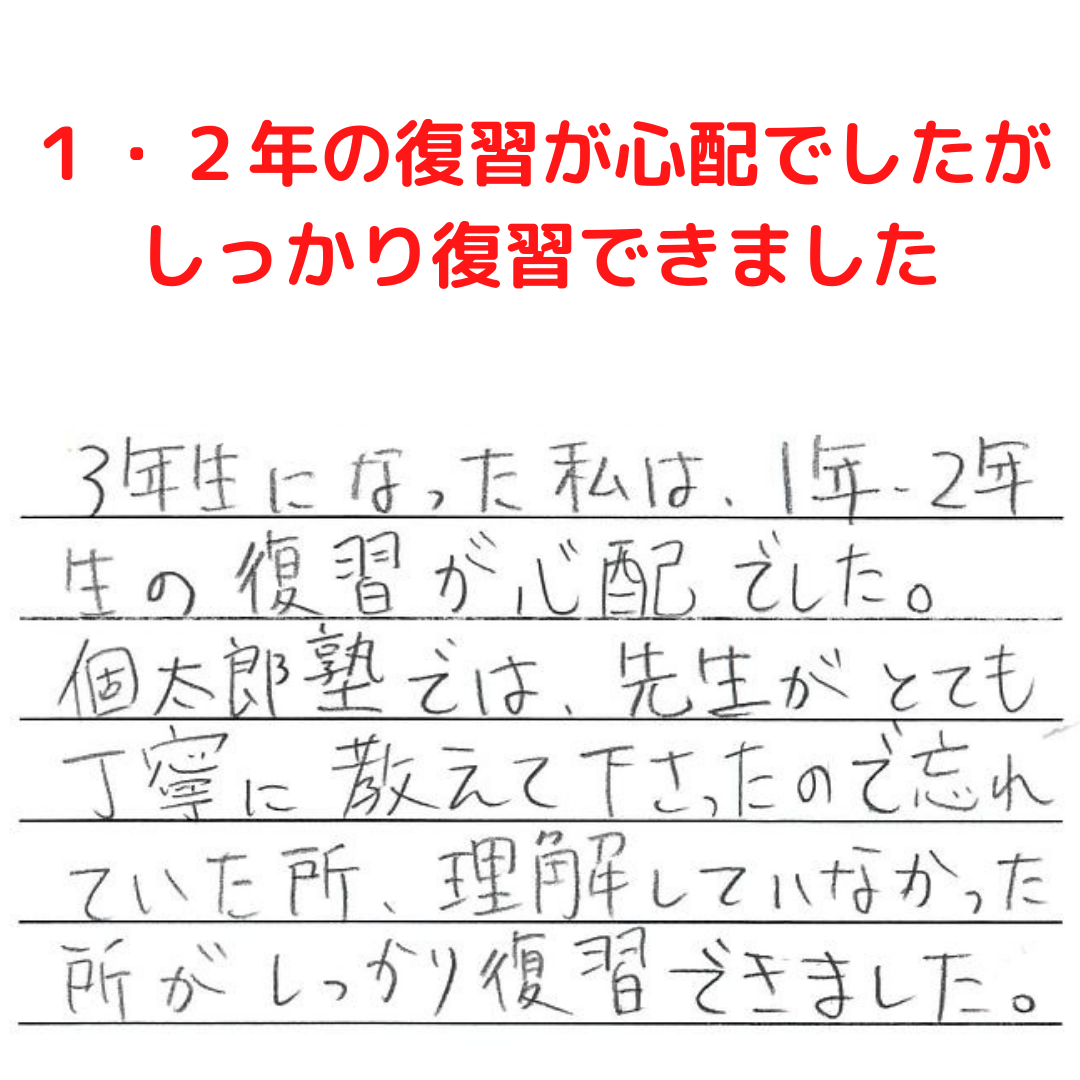 １・２年の復習が心配でしたが
しっかり復習できました
3年生になった私は、1年・2年
生の復習が心配でした。
個太郎塾では、先生がとても
丁寧に教えて下さったので忘れ
ていた所、理解していなかった
所がしっかり復習できました。